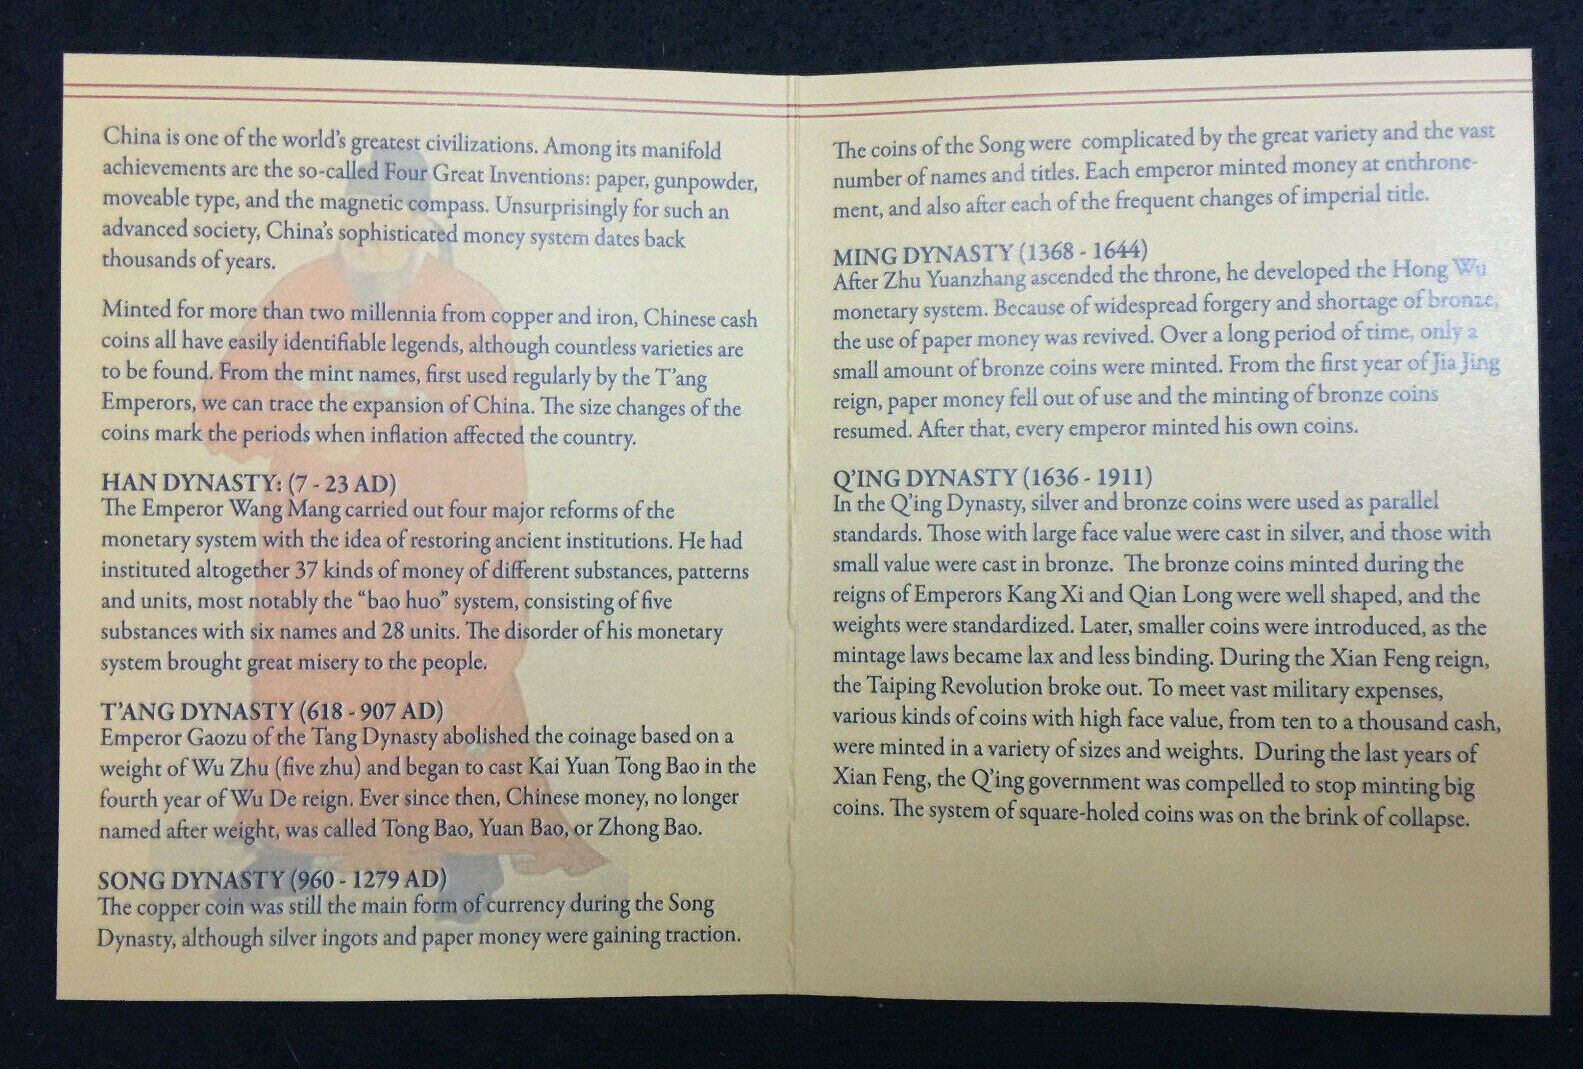 China is one of the world's greatest civilizations. Among its manifold
achievements are the so-called Four Great Inventions: paper, gunpowder,
moveable type, and the magnetic compass. Unsurprisingly for such an
advanced society, China's sophisticated money system dates back
thousands of years.
Minted for more than two millennia from copper and iron, Chinese cash
coins all have easily identifiable legends, although countless varieties are
to be found. From the mint names, first used regularly by the T'ang
Emperors, we can trace the expansion of China. The size changes of the
coins mark the periods when inflation affected the country.
HAN DYNASTY: (7 - 23 AD)
The Emperor Wang Mang carried out four major reforms of the
monetary system with the idea of restoring ancient institutions. He had
instituted altogether 37 kinds of money of different substances, patterns
and units, most notably the "bao huo" system, consisting of five
substances with six names and 28 units. The disorder of his monetary
system brought great misery to the people.
T'ANG DYNASTY (618 - 907 AD)
Emperor Gaozu of the Tang Dynasty abolished the coinage based on a
weight of Wu Zhu (five zhu) and began to cast Kai Yuan Tong Bao in the
fourth year of Wu De reign. Ever since then, Chinese money, no longer
named after weight, was called Tong Bao, Yuan Bao, or Zhong Bao.
SONG DYNASTY (960 - 1279 AD)
The copper coin was still the main form of currency during the Song
Dynasty, although silver ingots and paper money were gaining traction.
The coins of the Song were complicated by the great variety and the vast
number of names and titles. Each emperor minted money at enthrone-
ment, and also after each of the frequent changes of imperial title.
MING DYNASTY (1368 - 1644)
After Zhu Yuanzhang ascended the throne, he developed the Hong Wu
monetary system. Because of widespread forgery and shortage of bronze,
the use of paper money was revived. Over a long period of time, only a
small amount of bronze coins were minted. From the first year of Jia Jing
reign, paper money fell out of use and the minting of bronze coins
resumed. After that, every emperor minted his own coins.
Q'ING DYNASTY (1636 - 1911)
In the Q'ing Dynasty, silver and bronze coins were used as parallel
standards. Those with large face value were cast in silver, and those with
small value were cast in bronze. The bronze coins minted during the
reigns of Emperors Kang Xi and Qian Long were well shaped, and the
weights were standardized. Later, smaller coins were introduced, as the
mintage laws became lax and less binding. During the Xian Feng reign,
the Taiping Revolution broke out. To meet vast military expenses,
various kinds of coins with high face value, from ten to a thousand cash,
were minted in a variety of sizes and weights. During the last years of
Xian Feng, the Q'ing government was compelled to stop minting big
coins. The system of square-holed coins was on the brink of collapse.